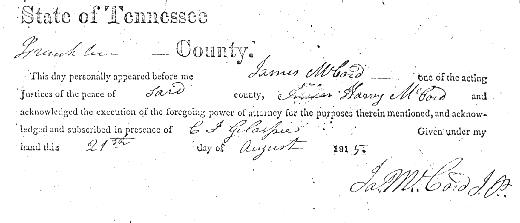 State of Tennessee
Franklin — County.
This day personally appeared before me James McCord — one of the acting
justices of the peace of said county, Harry McCord and
acknowledged the execution of the foregoing power of attorney for the purposes therein mentioned, and acknow-
ledged and subscribed in presence of C I Gillaspie Given under my
hand this 21th day of August 1815
Ja. McCord J. P.